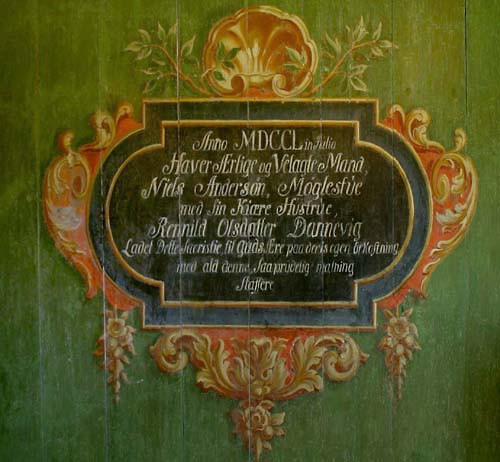 Anno MDCCL in Julio
Haver Ærlige og Velagte Mand,
Niels Anderson, Moglestue
med Sin Kiære Hustrue,
Rennild Olsdatter Dannevig
Ladet Dette Sacristie til Guds Ære paa deris egen bekostning
med ald denne Saa prÿdelig malning
Staffere